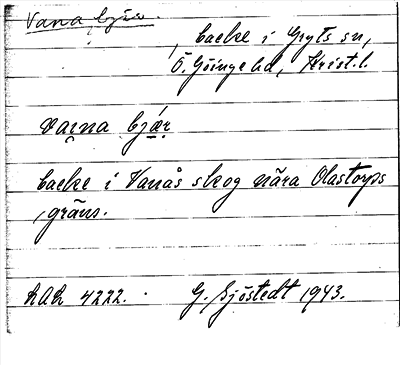 Vana bjär.
, backe i Gryts sn,
Ö. Göinge hd, Krist. l.
vaina bjär
backe i Vanås skog nära Olastorps
gräns.
LAL 4222. G. Sjöstedt 1943.